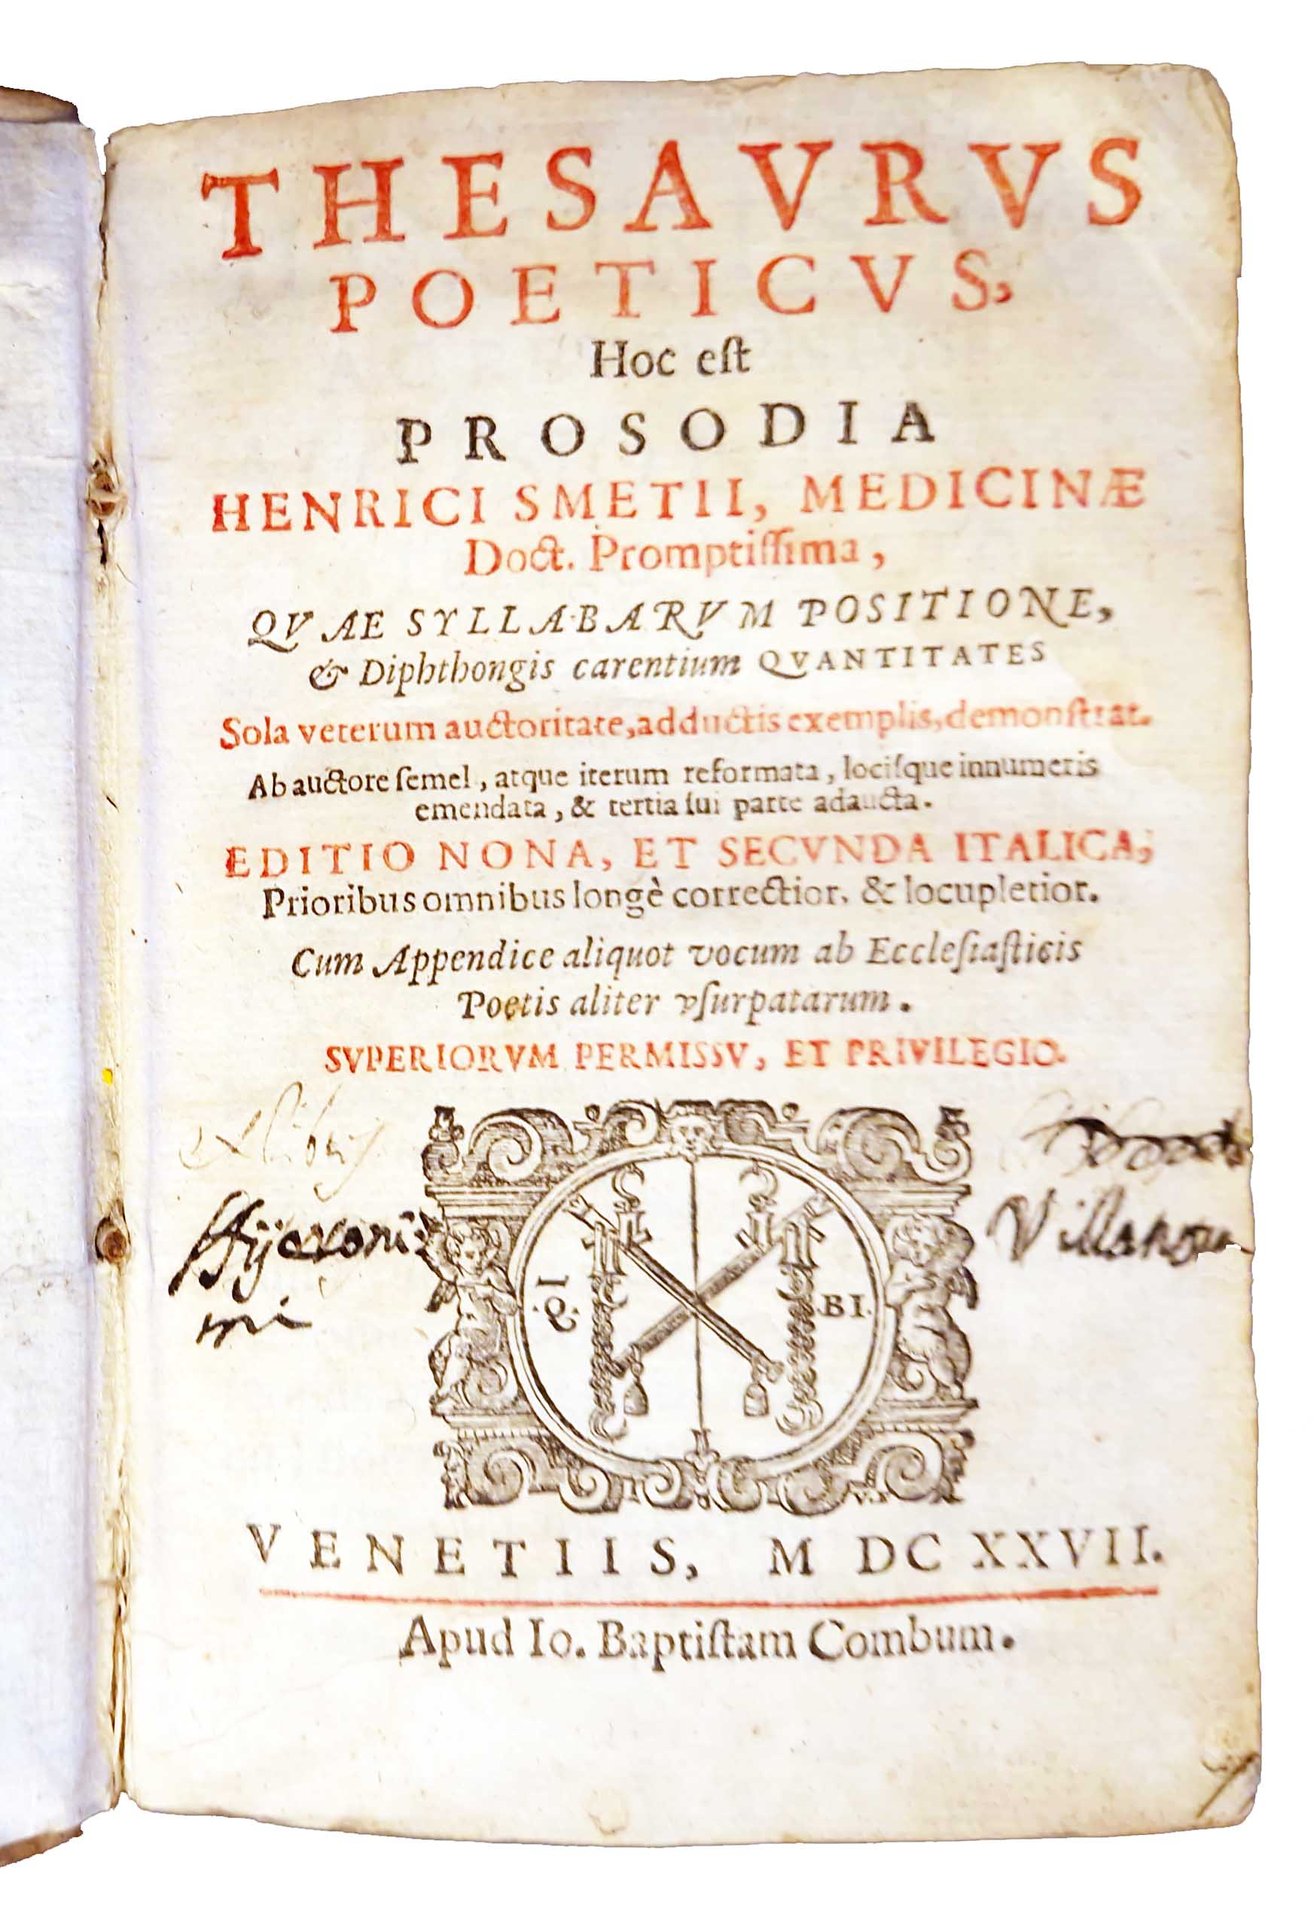 THESAVRVS
POETICVS,
Hoc eſt
PROSODIA
HENRICI SMETII, MEDICINÆ
Doct. Promptiſſima,
QVAE SYLLABARVM POSITIONE,
& Diphthongis carentium QVANTITATES
Sola veterum auctoritate, adductis exemplis, demonſtrat.
Ab auctore ſemel, atque iterum reformata, lociſque innumeris
emendata, & tertia ſui parte adaucta.
EDITIO NONA, ET SECVNDA ITALICA,
Prioribus omnibus longè correctior. & locupletior.
Cum Appendice aliquot vocum ab Eccleſiaſticis
Poetis aliter vſurpatarum.
SVPERIORVM PERMISSV, ET PRIVILEGIO.
Hijeroni
mi
BI.
VENETIIS, M DC XXVII.
Apud Io. Baptiſtam Combum.